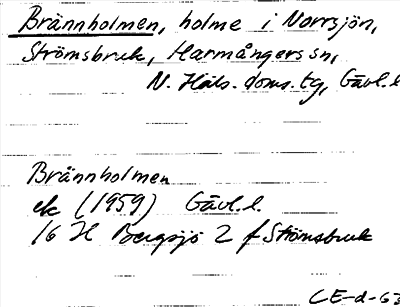 Brännholmen, holme i Norrsjön,
Strömsbruk, Harmångers sn,
N. Häls. doms. tg, Gävl. l.
Brännholmen
ek (1959) Gävl. l.
16 H Bergsjö 2 f Strömsbruk
CE-d-63